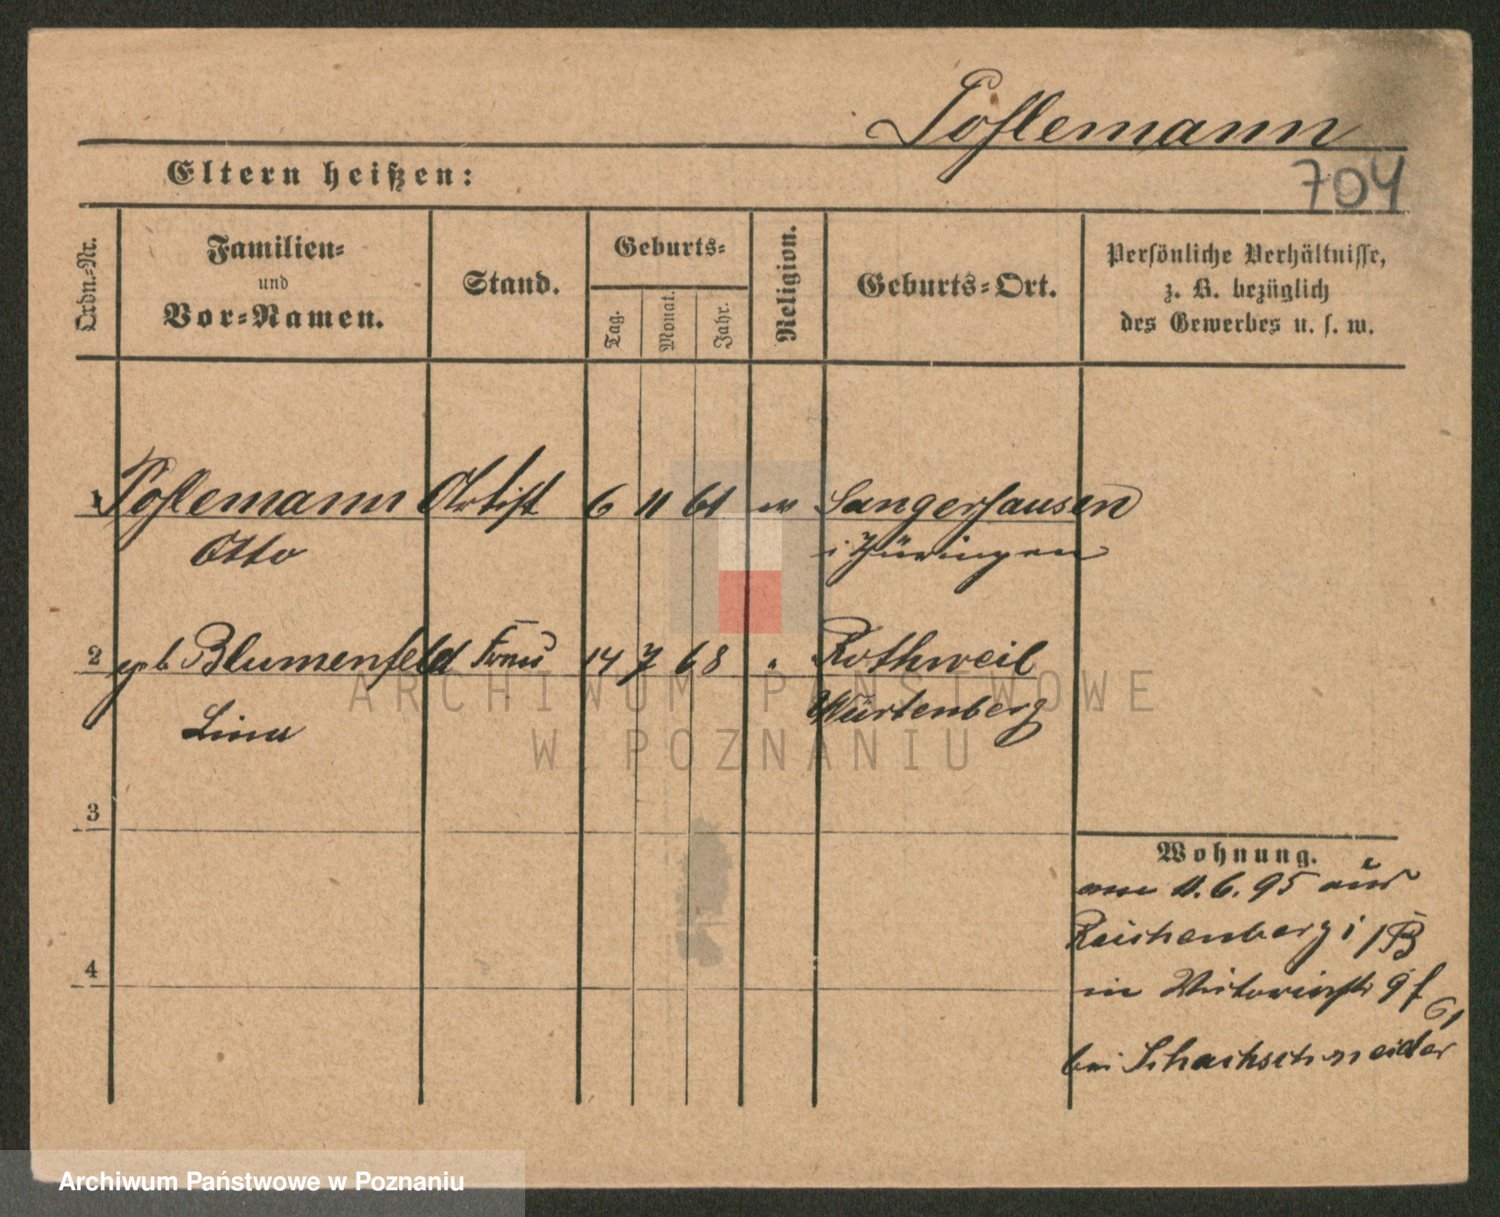 Pohlemann
Eltern heißen:
704
Ordn.-Nr.
Familien-
und
Vor-Namen.
Stand.
Geburts-
Tag.
Monat.
Jahr.
Religion.
Geburts-Ort.
Persönliche Verhältnisse,
z. B. bezüglich
des Gewerbes u. s. w.
1 Pohlemann Artist 6 11 61 ev Sangerhausen
Otto i Thüringen
2 geb Blumenfeld Frau 14 7 68 " Rothweil
Lina Würtenberg
3
4
Wohnung.
am 11.6.95 aus
Reichenberg i/B
in Victoriastr 9
bei Schachschneider
ARCHIWUM PAŃSTWOWE
W POZNANIU
Archiwum Państwowe w Poznaniu